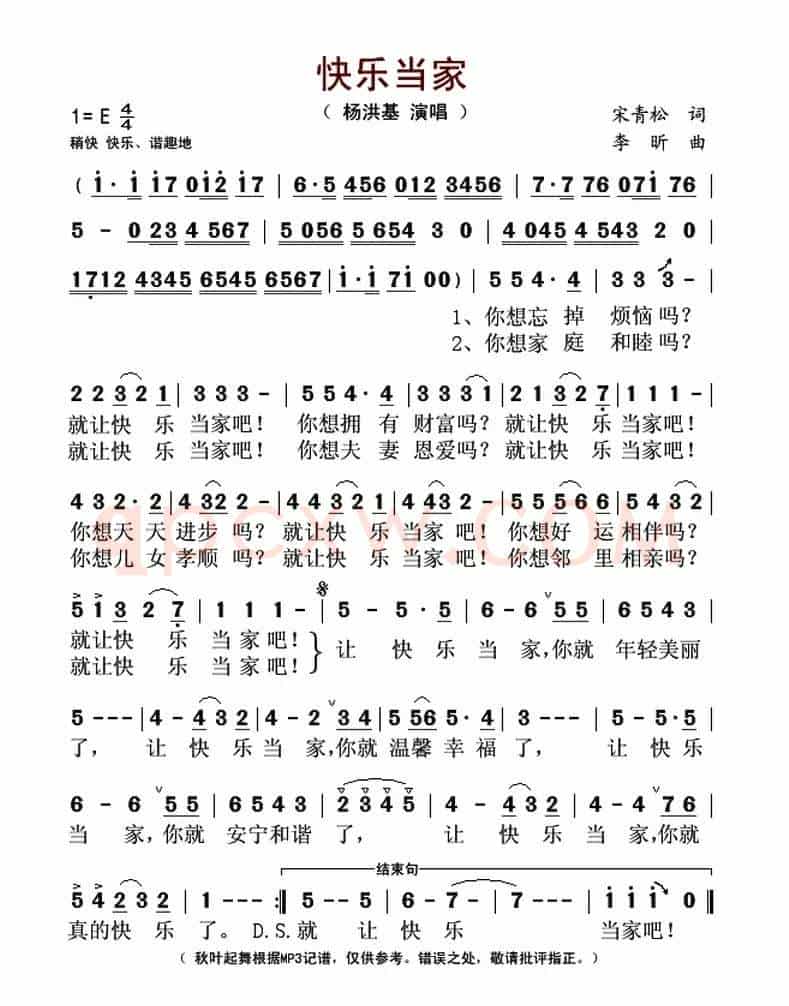 快乐当家
1= E 4/4
（ 杨洪基 演唱 ）
宋青松 词
稍快 快乐、谐趣地
李 昕 曲
( i· i 1 7 0 1 2 1 7 | 6·5 456 012 3456 | 7·7 76 071 76 |
5 - 0 23 4 567 | 5 056 5 654 3 0 | 4 045 4 543 2 0 |
1712 4345 6545 6567 | i·i 7i 00 ) | 5 5 4·4 | 3 3 3 - |
1、你想忘 掉 烦恼吗？
2、你想家 庭 和睦吗？
2 2 3 2 1 | 3 3 3 - | 5 5 4·4 | 3 3 3 1 | 2 1 3 2 7 | 1 1 1 - |
就让快 乐 当家吧！ 你想拥 有 财富吗？就让快 乐 当家吧！
就让快 乐 当家吧！ 你想夫 妻 恩爱吗？就让快 乐 当家吧！
4 3 2·2 | 4 3 2 2 - | 4 4 3 2 1 | 4 4 3 2 - | 5 5 5 6 6 | 5 4 3 2 |
你想天 天 进步 吗？ 就让快 乐 当家 吧！ 你想好 运 相伴吗？
你想儿 女 孝顺 吗？ 就让快 乐 当家 吧！ 你想邻 里 相亲吗？
5 i 3 2 7 | 1 1 1 - | 5 - 5·5 | 6 - 6 5 5 | 6 5 4 3 |
就让快 乐 当 家 吧！
就让快 乐 当 家 吧！
让 快 乐 当 家，你就 年轻美丽
5 - - - | 4 - 4 3 2 | 4 - 2 3 4 | 5 5 6 5·4 | 3 - - - | 5 - 5·5 |
了， 让 快乐当 家，你就 温馨 幸 福 了， 让 快乐
6 - 6 5 5 | 6 5 4 3 | 2 3 4 5 | 4 - 4 3 2 | 4 - 4 7 6 |
当 家，你就 安宁和谐 了， 让 快乐 当 家，你就
结束句
5 4 2 3 2 | 1 - - - :| 5 - - 5 | 6 - 7 - | 7 - - - | i i i 0 |
真的 快乐 了。 D.S.就 让 快乐 当家吧！
（ 秋叶起舞根据MP3记谱，仅供参考。错误之处，敬请批评指正。）
qpcxw.com